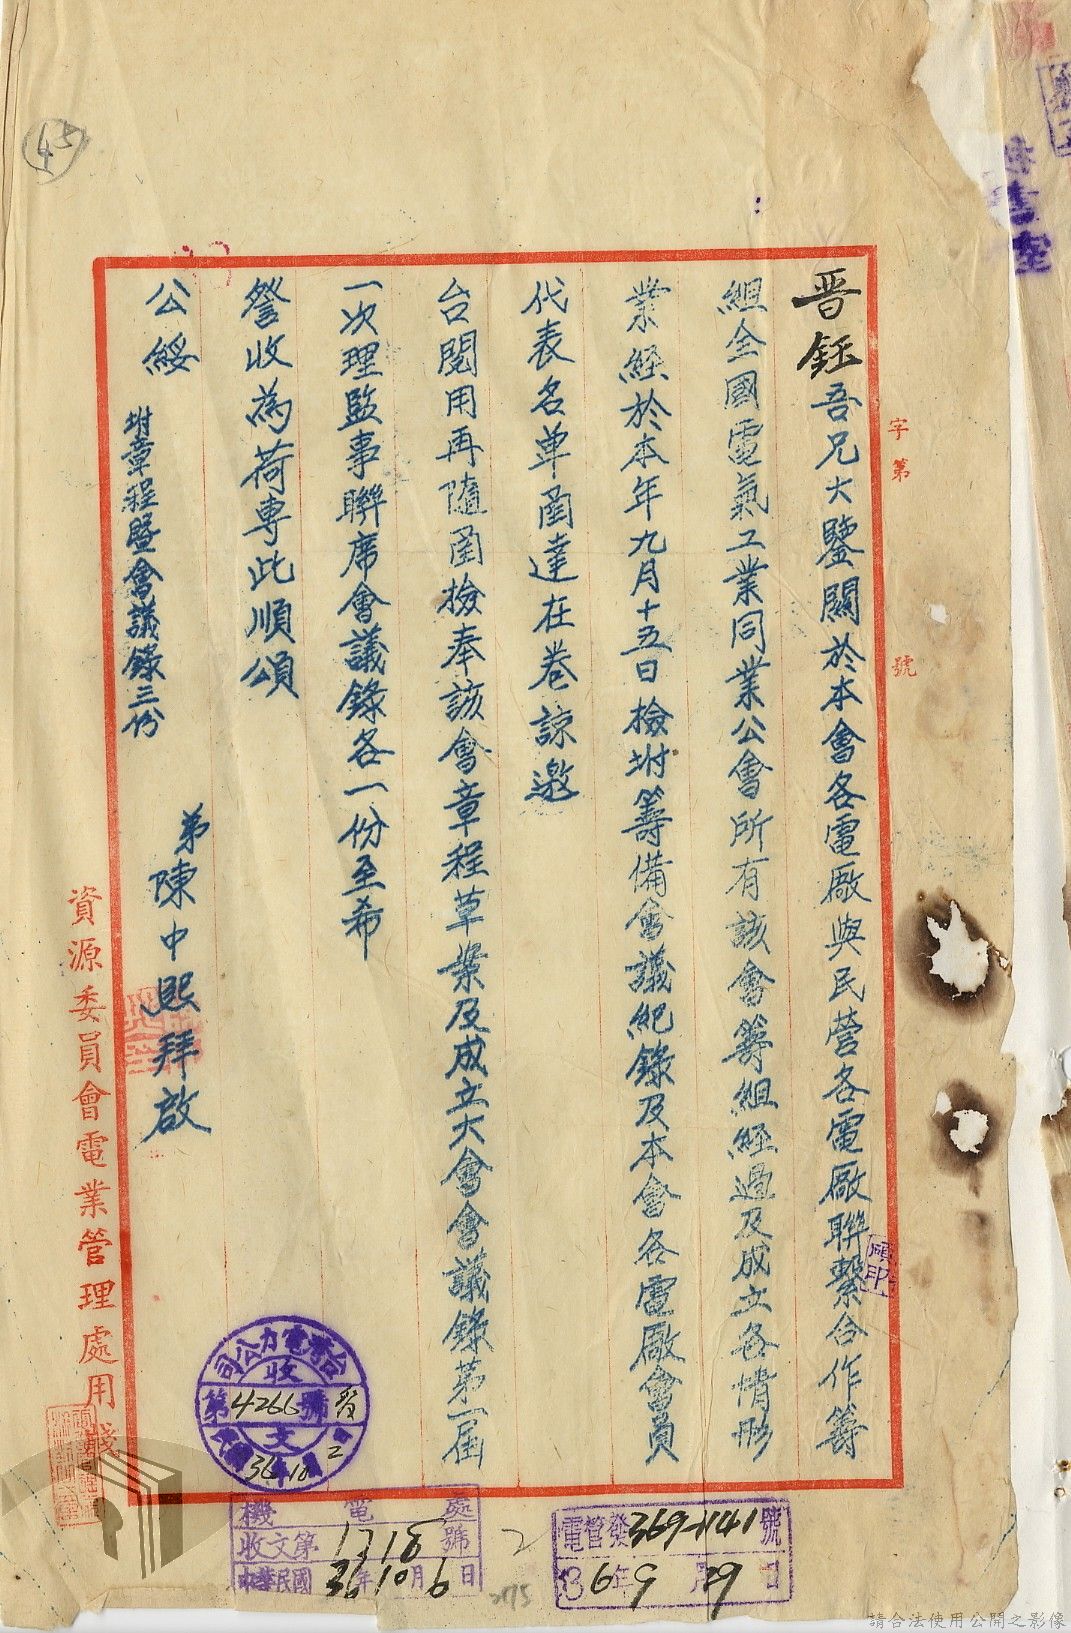 晉鈺吾兄大鑒關於本會各電廠與民營各電廠聯繫合作籌
組全國電氣工業同業公會所有該會籌組經過及成立各情形
業經於本年九月十五日檢坿籌備會議紀錄及本會各電廠會員
代表名單函達在卷諒邀
台閱用再隨函檢奉該會章程草案及成立大會會議錄第一屆
一次理監事聯席會議錄各一份至希
詧收為荷專此順頌
公綏
坿章程暨會議錄三份
弟陳中熙拜啟
資源委員會電業管理處用箋
字第 號
45
台灣電力公司
收
第4266號
文
36年10月2日
機電處
收文第1218號
中華民國36年10月6日
2
電管發369-1141號
36年9月29日
請合法使用公開之影像